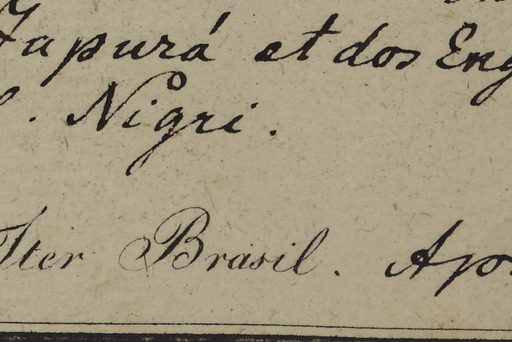 Japurá et dos Eng
l. Nigri.
Iter Brasil. Apr